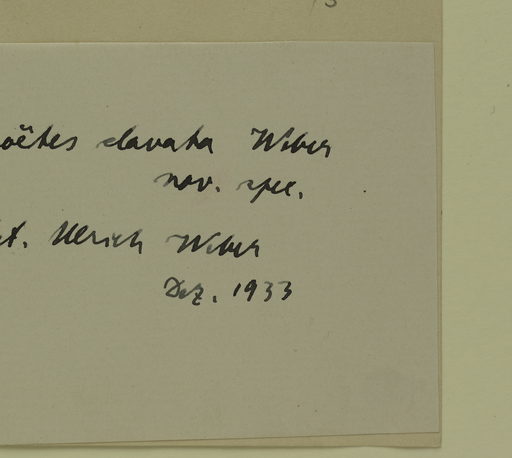 oëtes clavata Weber
nov. spec.
et. Ulrich Weber
Dez. 1933